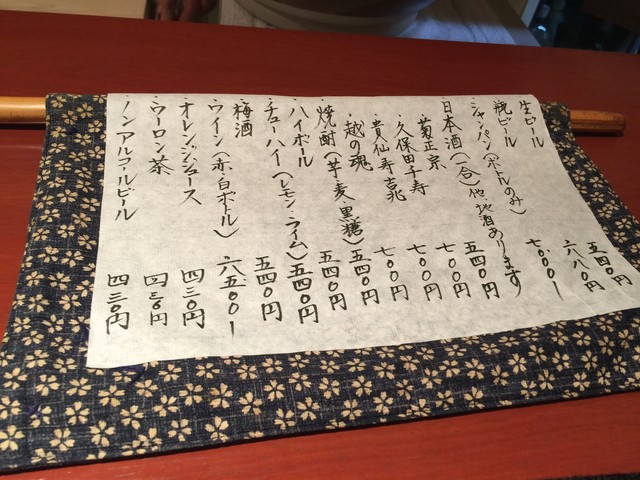 ・生ビール 五四〇円
・瓶ビール 六八〇円
・シャンパン(ボトルのみ) 七、〇〇〇ー
・日本酒(一合)他、地酒あります
菊正宗 五四〇円
・久保田千寿 七〇〇円
・貴仙寿吉兆 七〇〇円
越の魂 七〇〇円
・焼酎(芋・麦・黒糖) 五四〇円
・ハイボール 五四〇円
・チューハイ(レモン・ライム) 五四〇円
・梅酒 五四〇円
・ワイン(赤・白ボトル) 六、五〇〇ー
・オレンジジュース 四三〇円
・ウーロン茶 四三〇円
・ノンアルコールビール 四三〇円